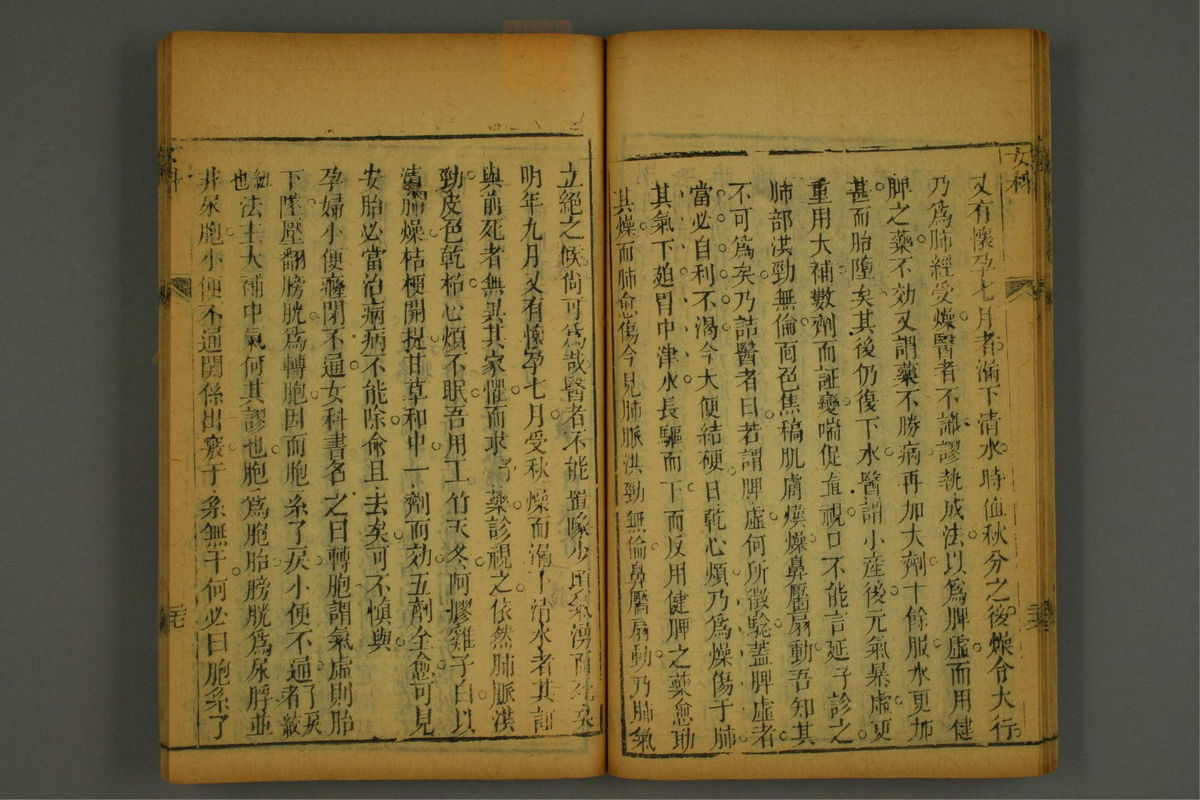 女科
又有懷孕七月者漏下清水時值秋分之後燥令大行
乃爲肺經受燥醫者不識謬執成法以爲脾虛而用健
脾之藥不効又謂藥不勝病再加大劑十餘服水更加
甚而胎墮矣其後仍復下水醫謂小產後元氣暴虛更
重用大補數劑而証變喘促直視口不能言延予診之
肺部洪勁無倫面色焦槁肌膚熯燥鼻翳扇動吾知其
不可爲矣乃詰醫者曰若謂脾虛何所徵驗蓋脾虛者
當必自利不渴今大便結硬口乾心煩乃爲燥傷于肺
其氣下廹胃中津水長驅而下而反用健脾之藥愈助
其燥而肺愈傷今見肺脈洪勁無倫鼻翳扇動乃肺氣
立絕之候尙可爲哉醫者不能置喙少頃氣湧而死矣
明年九月又有懷孕七月受秋燥而漏下清水者其証
與前死者無異其家懼而求予藥診視之依然肺脈洪
勁皮色乾枯心煩不眠吾用玉竹天冬阿膠雞子白以
清肺燥桔梗開提甘草和中一劑而効五劑全愈可見
安胎必當治病病不能除兪且去矣可不愼與
孕婦小便癃閉不通女科書名之曰轉胞謂氣虛則胎
下墜壓翻膀胱爲轉胞因而胞系了戾小便不通者了戾絞
紐也法主大補中氣何其謬也胞爲胞胎膀胱爲尿脬並
非尿胞小便不通關係出竅于系無干何必曰胞系了
女科